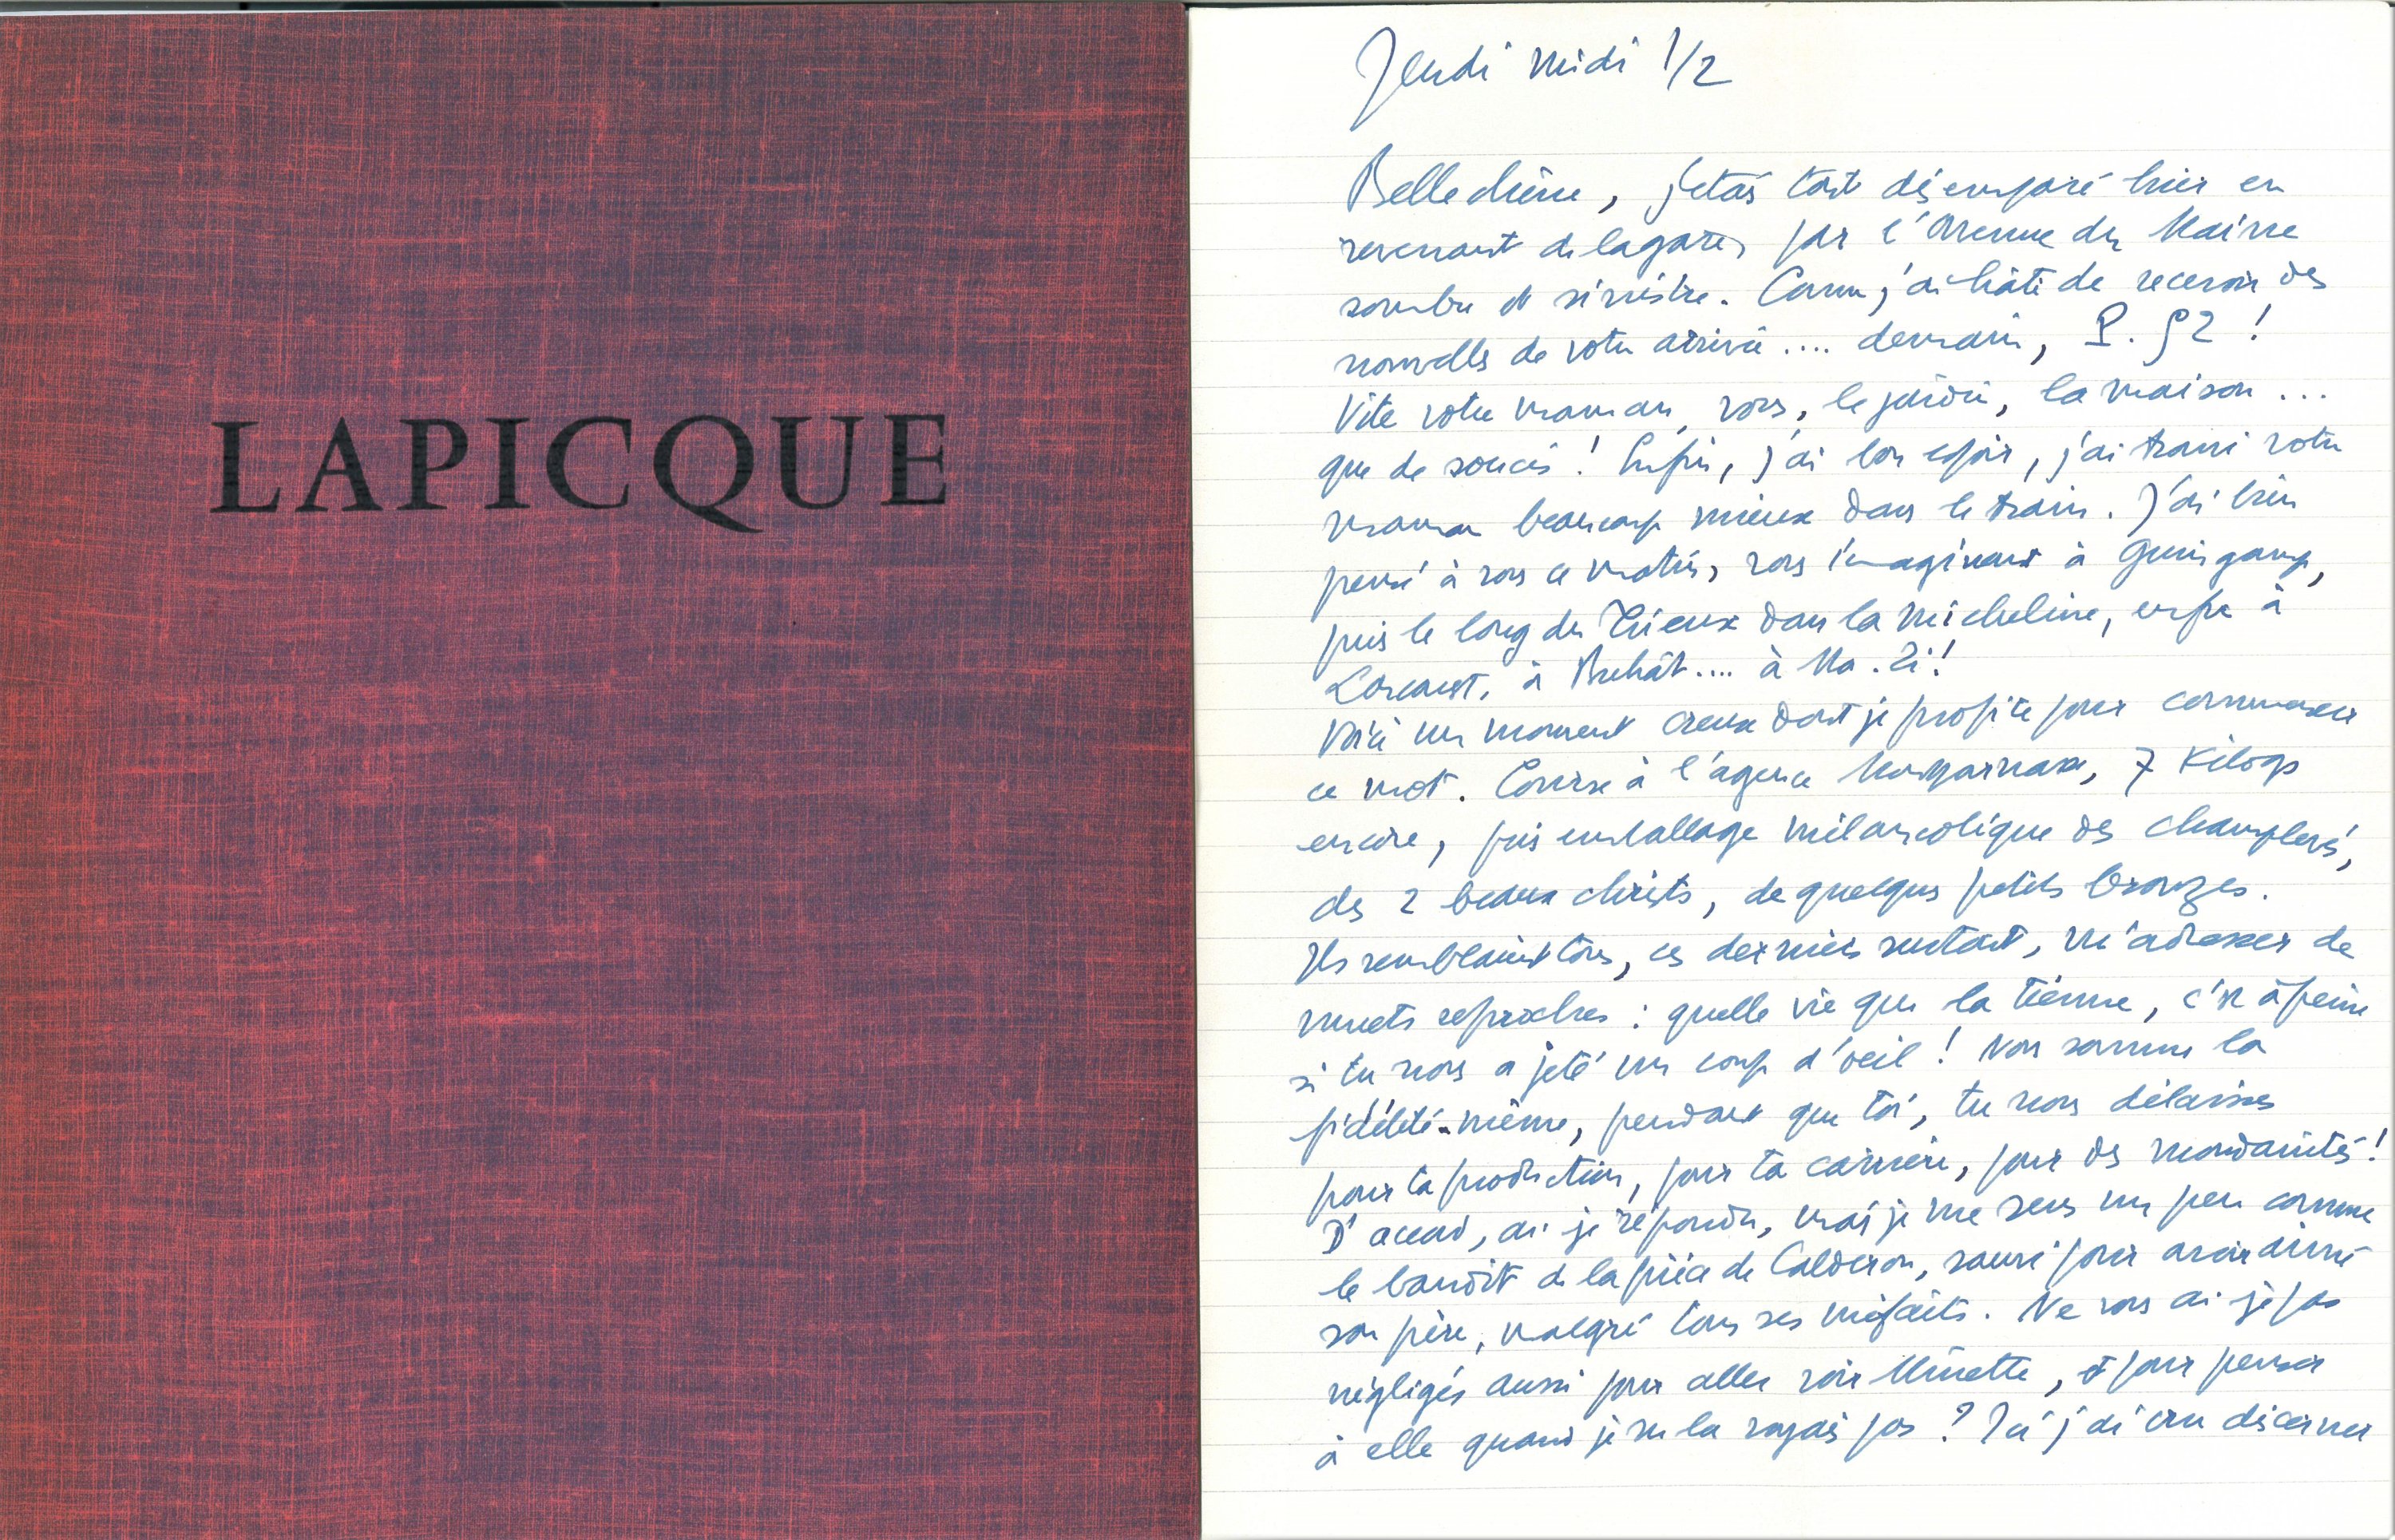 LAPICQUE
Jeudi midi 1/2
Belle chérie, j'étais tout désemparé hier en
revenant de la gare, par l'Avenue du Maine
sombre et sinistre. Comme j'ai hâte de recevoir des
nouvelles de votre arrivée .... demain, !
Vite votre maman, vous, le jardin, la maison ...
que de soucis ! Enfin, j'ai bon espoir, j'ai trouvé votre
maman beaucoup mieux dans le train. J'ai bien
pensé à vous ce matin, vous imaginant à Guingamp,
puis le long du Trieux dans la Micheline, enfin à
à Bréhat .... à Ma. Zi !
Voici un moment creux dont je profite pour commencer
ce mot. Course à l'agence Montparnasse, 7 kilogs
encore, puis emballage mélancolique des champlevés,
des 2 beaux christs, de quelques petits bronzes.
Ils semblaient tous, ces derniers surtout, m'adresser de
muets reproches : quelle vie que la tienne, c'est à peine
si tu nous a jeté un coup d'oeil ! Nous sommes la
fidélité-même, pendant que toi, tu nous délaisses
pour ta production, pour ta carrière, pour des mondanités !
D'accord, ai je répondu, mais je me sens un peu comme
le bandit de la pièce de Calderon, sauvé pour avoir aimé
son père, malgré tous ses méfaits. Ne vous ai je pas
négligés aussi pour aller voir Minette, et pour penser
à elle quand je ne la voyais pas ? Ici j'ai cru discerner